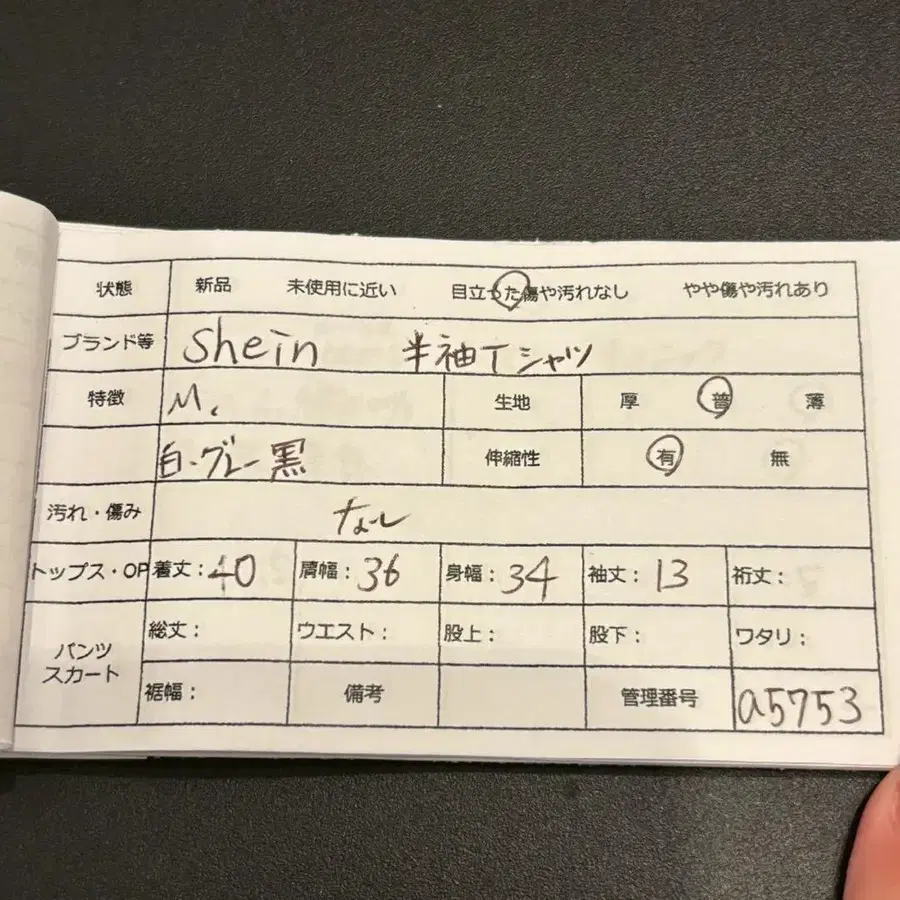 状態 新品 未使用に近い 目立った傷や汚れなし やや傷や汚れあり
ブランド等 Shein 半袖Tシャツ
特徴 M. 生地 厚 普 薄
白・グレー 黒 伸縮性 有 無
汚れ・傷み なし
トップス・OP 着丈：40 肩幅：36 身幅：34 袖丈：13 裄丈：
パンツ スカート 総丈： ウエスト： 股上： 股下： ワタリ：
裾幅： 備考 管理番号 a5753